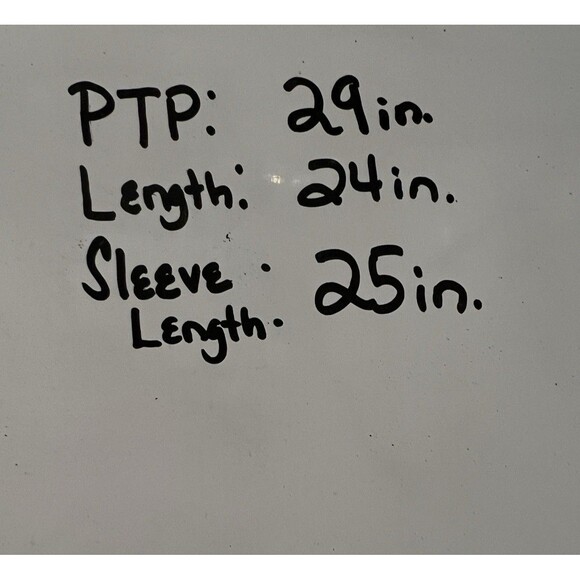 PTP: 29in.
Length: 24in.
Sleeve : 25in.
Length.